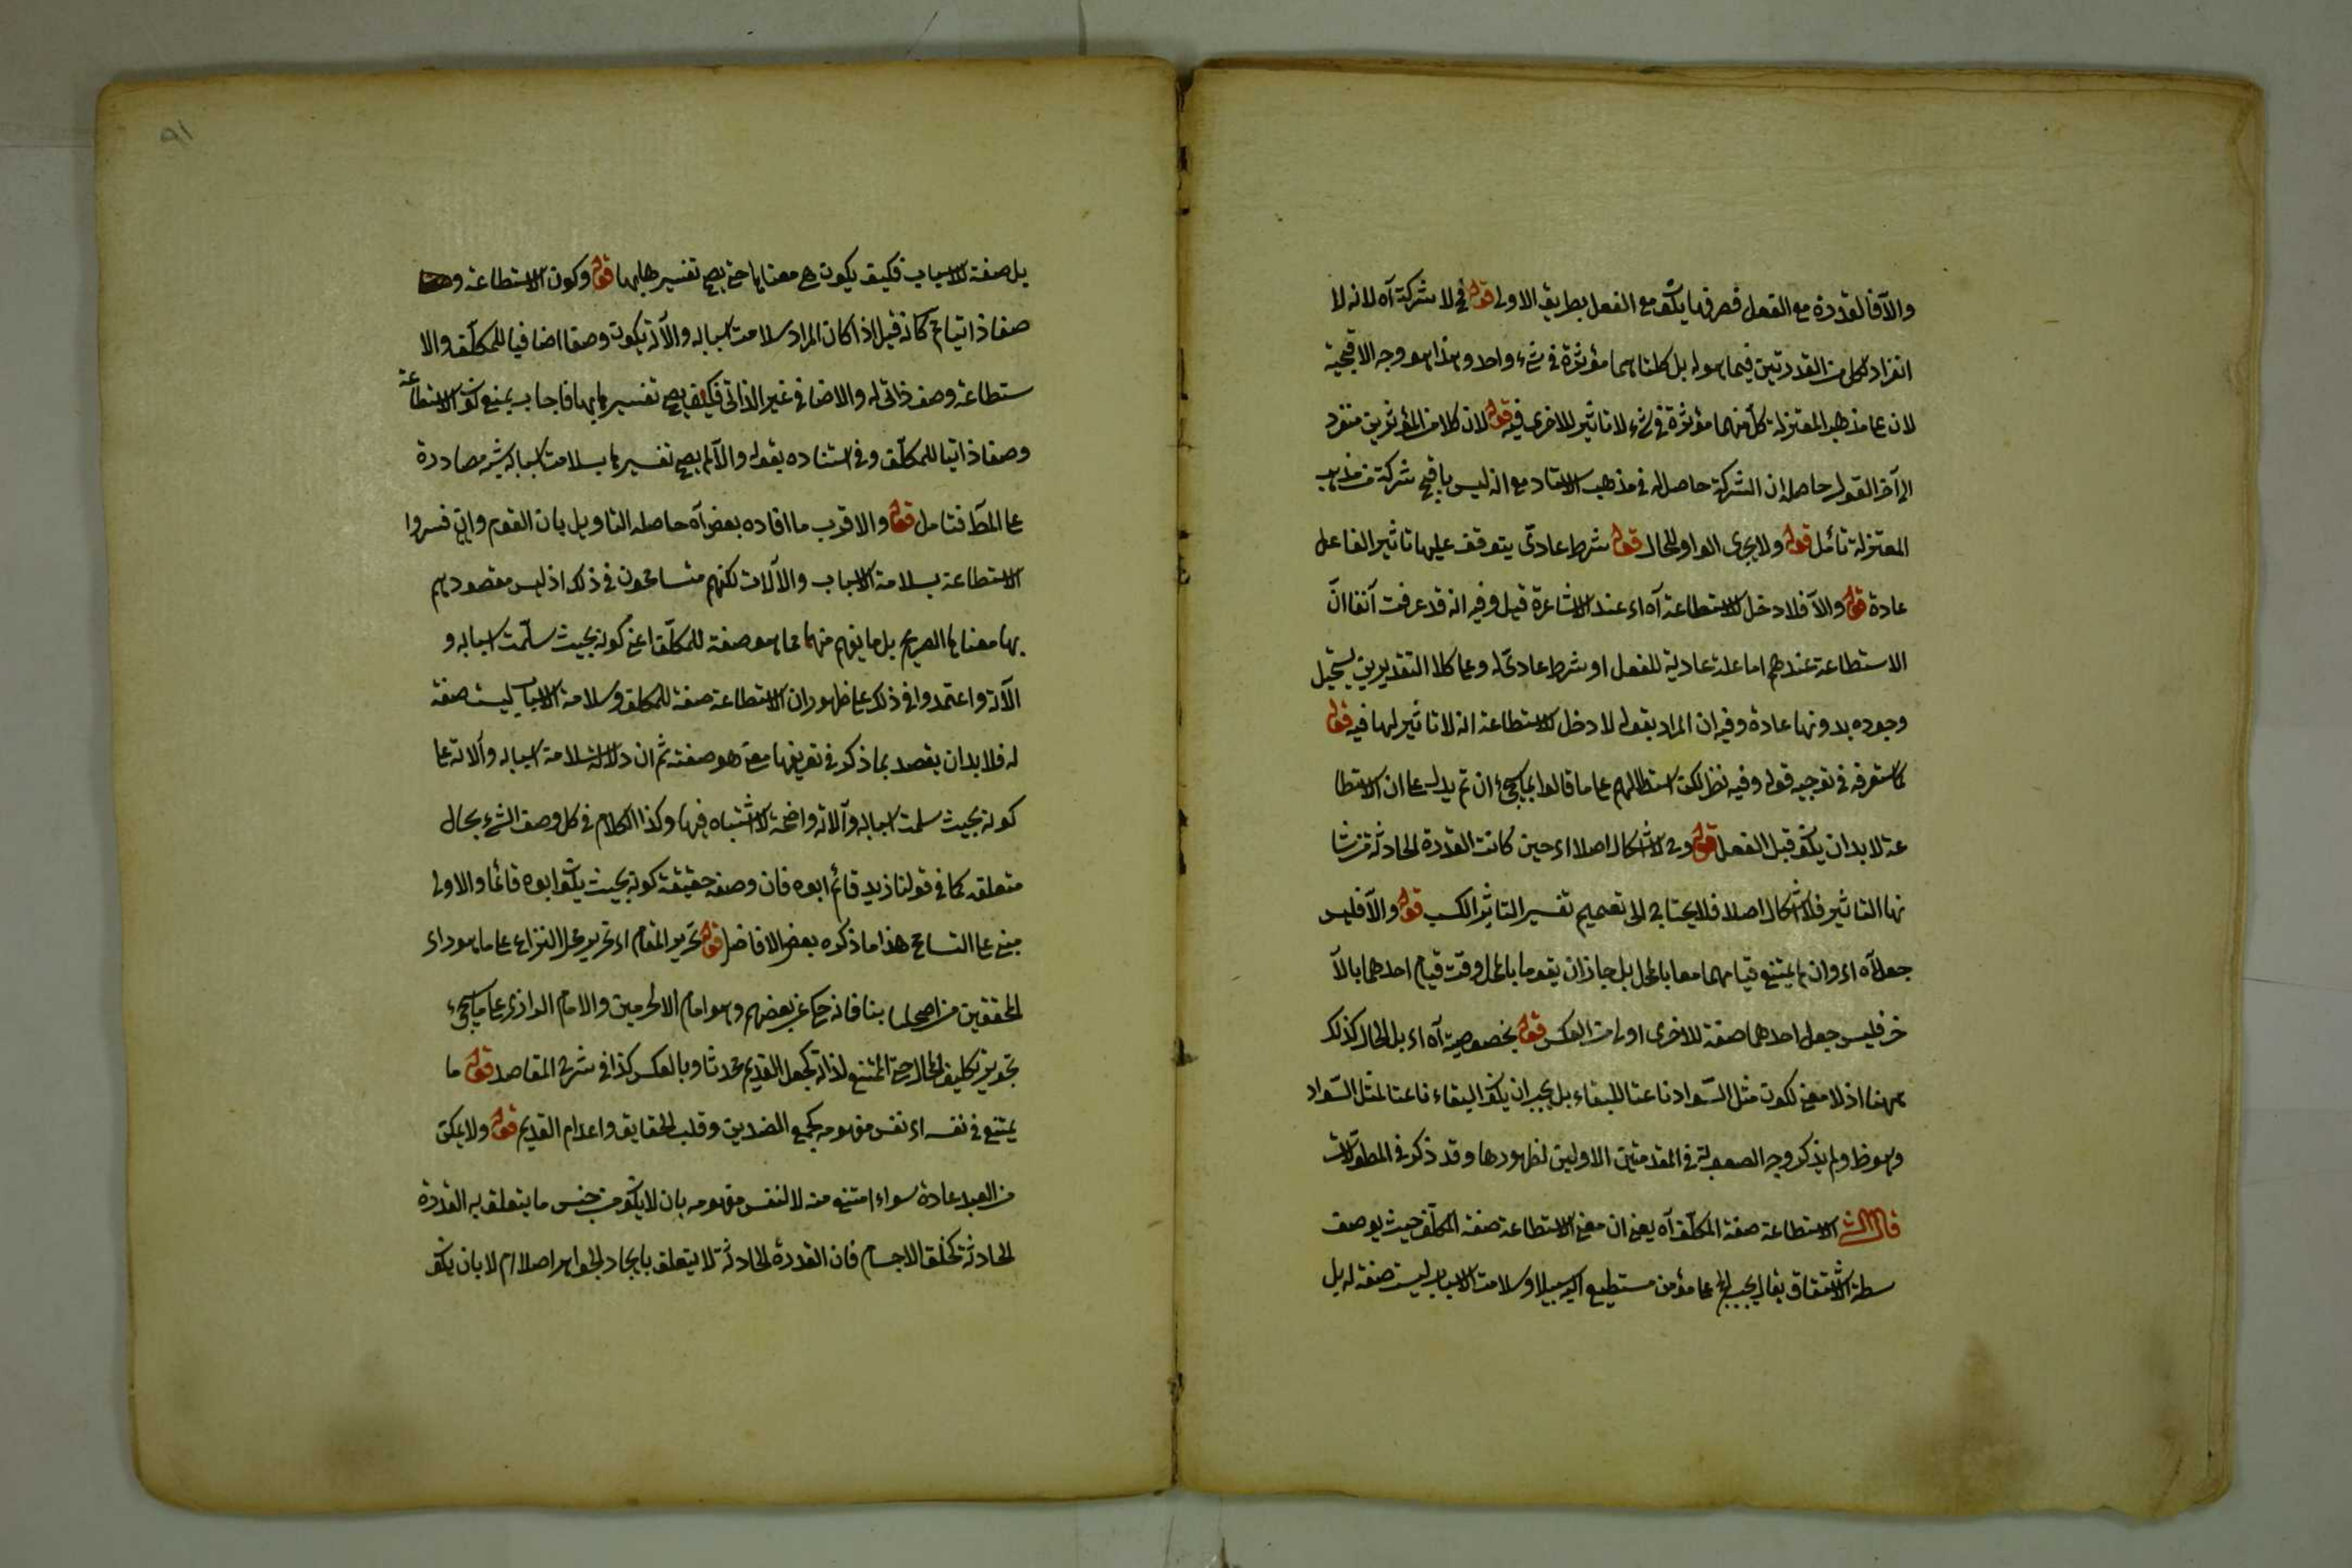 والا فالقدرة مع الفعل فصرفها يكون مع الفعل بطريق الاولى قوله فح لا شركة آه لانه لا
انفراد لكل من القدرتين فيما هو له بل كلتاهما مؤثرة في شيء واحد وهذا هو وجه الاقبحية
لان على مذهب المعتزلة كل منهما مؤثرة في شيء لا تاثير للاخرى فيه قوله لان كلا من المؤثرين منفرد
الى آخر القول حاصله ان الشركة حاصلة في مذهب الاستاد مع انه ليس باقبح شركة من مذهب
المعتزلة تأمل قوله ولا يجرى الواو للحال قوله شرط عادى يتوقف عليها تاثير الفاعل
عادة قوله والا فلا دخل للاستطاعة آه اى عند الاشاعرة قيل وفيه انه قد عرفت آنفا ان
الاستطاعة عندهم اما علة عادية للفعل او شرط عادى له وعلى كلا التقديرين يستحيل
وجوده بدونها عادة وفيه ان المراد بقوله لا دخل للاستطاعة انه لا تاثير لها فيه قوله
كما ستعرفه في توجيه قوله وفيه نظر لكن استدلالهم على ما قالوا بما يجيء ان تم يدل على ان الاستطا
عة لا بد ان يكون قبل الفعل قوله وح لا اشكال اصلا اى حين كانت القدرة الحادثة من شا
نها التاثير فلا اشكال اصلا فلا يحتاج الى تعميم تفسير التاثير الكسب قوله والا فليس
جعل آه اى وان لم يمتنع قيامهما معا بالمحل بل جاز ان يقوما بالمحل وقت قيام احدهما بالآ
خر فليس جعل احدهما صفة للاخرى اولى من العكس قوله بخصوصية آه اى بل الحال كذلك
ههنا اذ لا معنى لكون مثل السواد ناعتا للبقاء بل يجب ان يكون البقاء ناعتا لمثل السواد
وهو ظ ولم يذكر وجه الصعوبة في المقدمتين الاوليين لظهورها وقد ذكر في المطولات
قال الش الاستطاعة صفة المكلف آه يعنى ان معنى الاستطاعة صفة المكلف حيث يوصف
سطة الاشتقاق يقال يجب الحج على مؤمن مستطيع اليه سبيلا وسلامت الاسباب ليست صفة له بل
٩١
بل صفة للاسباب فكيف يكون هى معناها حتى يصح تفسيرها بها قوله وكون الاستطاعة و
صفا ذاتيا مم كانه قيل اذا كان المراد سلامت اسبابه والآته يكون وصفا اضافيا للمكلف والا
ستطاعة وصف ذاتى له والاضافى غير الذاتى فكيف يصح تفسيرها بها فاجاب بمنع كون الاستطاعة
وصفا ذاتيا للمكلف وفى استناده بقوله والا لم يصح تفسيرها بسلامت اسبابه شبه مصادرة
على المط فتامل قوله والاقرب ما افاده بعض آه حاصله التاويل بان القوم وان فسروا
الاستطاعة بسلامة الاسباب والآلات لكنهم متسامحون في ذلك اذ ليس مقصودهم
بها معناها الصريح بل ما يفهم منها مما هو صفة للمكلف اعنى كونه بحيث سلمت اسبابه و
الآته واعتمدوا في ذلك على ظهور ان الاستطاعة صفة للمكلف وسلامة الاسباب ليست صفة
له فلا بد ان يقصد بما ذكر في تعريفها معنى هو صفته ثم ان دلالة سلامة اسبابه وآلاته على
كونه بحيث سلمت اسبابه وآلاته واضحة لا اشتباه فيها وكذا الكلام في كل وصف الشيء بحال
متعلقه كما في قولنا زيد قائم ابوه فان وصفه حقيقة كونه بحيث يكون ابوه قائما والاولى
مبنى على التسامح هذا ما ذكره بعض الافاضل قوله تحرير المقام اى تحرير محل النزاع على ما هو رأى
المحققين من اصحابنا فانه حكى عن بعضهم وهو امام الحرمين والامام الرازى على ما سيجيء
تجويز تكليف المحال حتى الممتنع لذاته كجعل القديم محدثا وبالعكس كذا في شرح المقاصد قوله ما
يمتنع في نفسه اى نفس مفهومه كجمع الضدين وقلب الحقايق واعدام القديم قوله ولا يمكن
من العبد عادة سواء امتنع منه لا لنفس مفهومه بان لا يكون من جنس ما يتعلق به القدرة
الحادثة كخلق الاجسام فان القدرة الحادثة لا يتعلق بايجاد الجواهر اصلا ام لا بان يكون